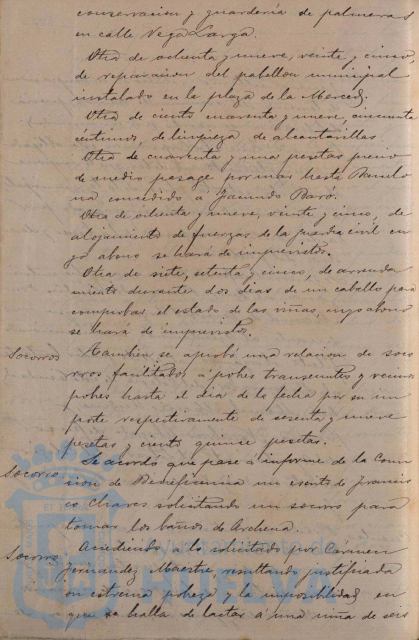 conservacion y guardería de palmeras
en calle Vega Larga.
Otra de ochenta y nueve, veinte y cinco,
de reparacion del pabellon municipal
instalado en la plaza de la Merced.
Otra de ciento cuarenta y nueve, cincuenta
centimos, de limpieza de alcantarillas.
Otra de cuarenta y una pesetas precio
de medio pasage por mar hasta Barcelo
na concedido á Jacundo Baró.
Otra de ochenta y nueve, veinte y cinco, de
alojamiento de fuerzas de la guardia civil cu
yo abono se hará de imprevistos.
Otra de siete, setenta y cinco, de arrenda
miento durante dos dias de un caballo para
comprobar el estado de las viñas, cuyo abono
se hará de imprevistos.
Socorros
Tambien se aprobó una relacion de soco
rros facilitados á pobres transeuntes y vecinos
pobres hasta el dia de la fecha por su im
porte respectivamente de sesenta y nueve
pesetas y ciento quince pesetas.
Socorro
Se acordó que pase á informe de la Comi
sion de Beneficencia un escrito de Francis
co Chares solicitando un socorro para
tomar los baños de Archena.
Socorro
Accediendo á lo solicitado por Cármen
Fernandez Maestre, resultando justificada
su estrema pobreza y la imposibilidad en
que se halla de lactar á una niña de seis
Ayuntamiento de
HUELVA